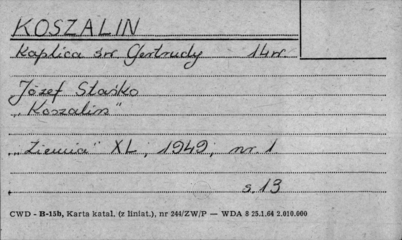 KOSZALIN
Kaplica św Gertrudy 14w.
Józef Staśko
„Koszalin"
„Ziemia" XL, 1949, nr 1
s. 13
CWD - B-15b, Karta katal. (z liniat.), nr 244/ZW/P — WDA 8 25.1.64 2.010.000